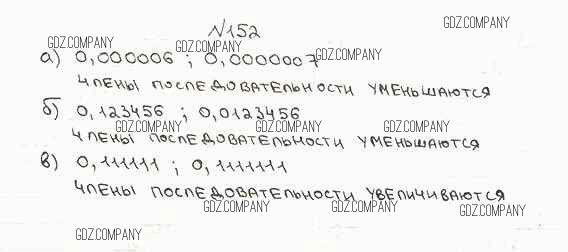 N152
GDZ.COMPANY
GDZ.COMPANY GDZ.COMPANY
а) 0,000006 ; 0,0000007
GDZ.COMPANY
члены последовательности уменьшаются
б) 0,123456 ; 0,0123456
GDZ.COMPANY GDZ.COMPANY GDZ.COMPANY
члены последовательности уменьшаются
в) 0,111111 ; 0,1111111
члены последовательности увеличиваются
GDZ.COMPANY GDZ.COMPANY GDZ.COMPANY
GDZ.COMPANY